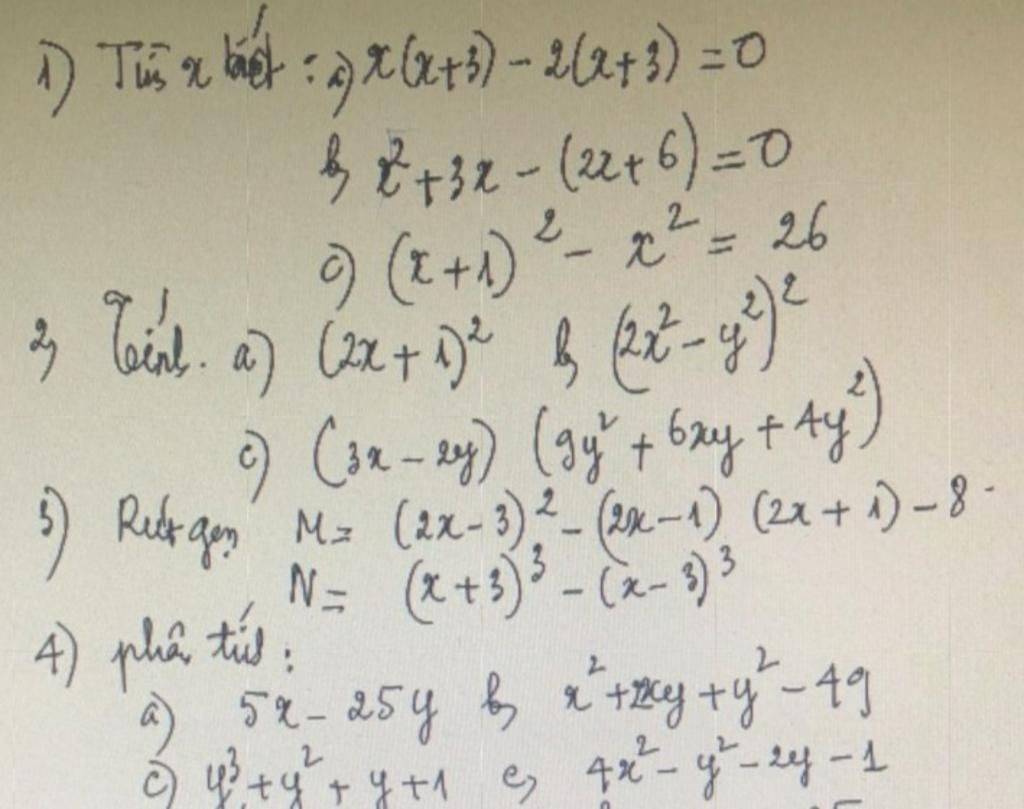 1) Tìm x biết : a) x(x+3) - 2(x+3) = 0
b, x² + 3x - (2x + 6) = 0
c) (x + 1)² - x² = 26
2, Tính. a) (2x + 1)² b, (2x² - y²)²
c) (3x - 2y) (9y² + 6xy + 4y²)
3) Rút gọn M = (2x - 3)² - (2x - 1) (2x + 1) - 8
N = (x + 3)³ - (x - 3)³
4) phân tích :
a) 5x - 25y b, x² + 2xy + y² - 49
c) y³ + y² + y + 1 e, 4x² - y² - 2y - 1